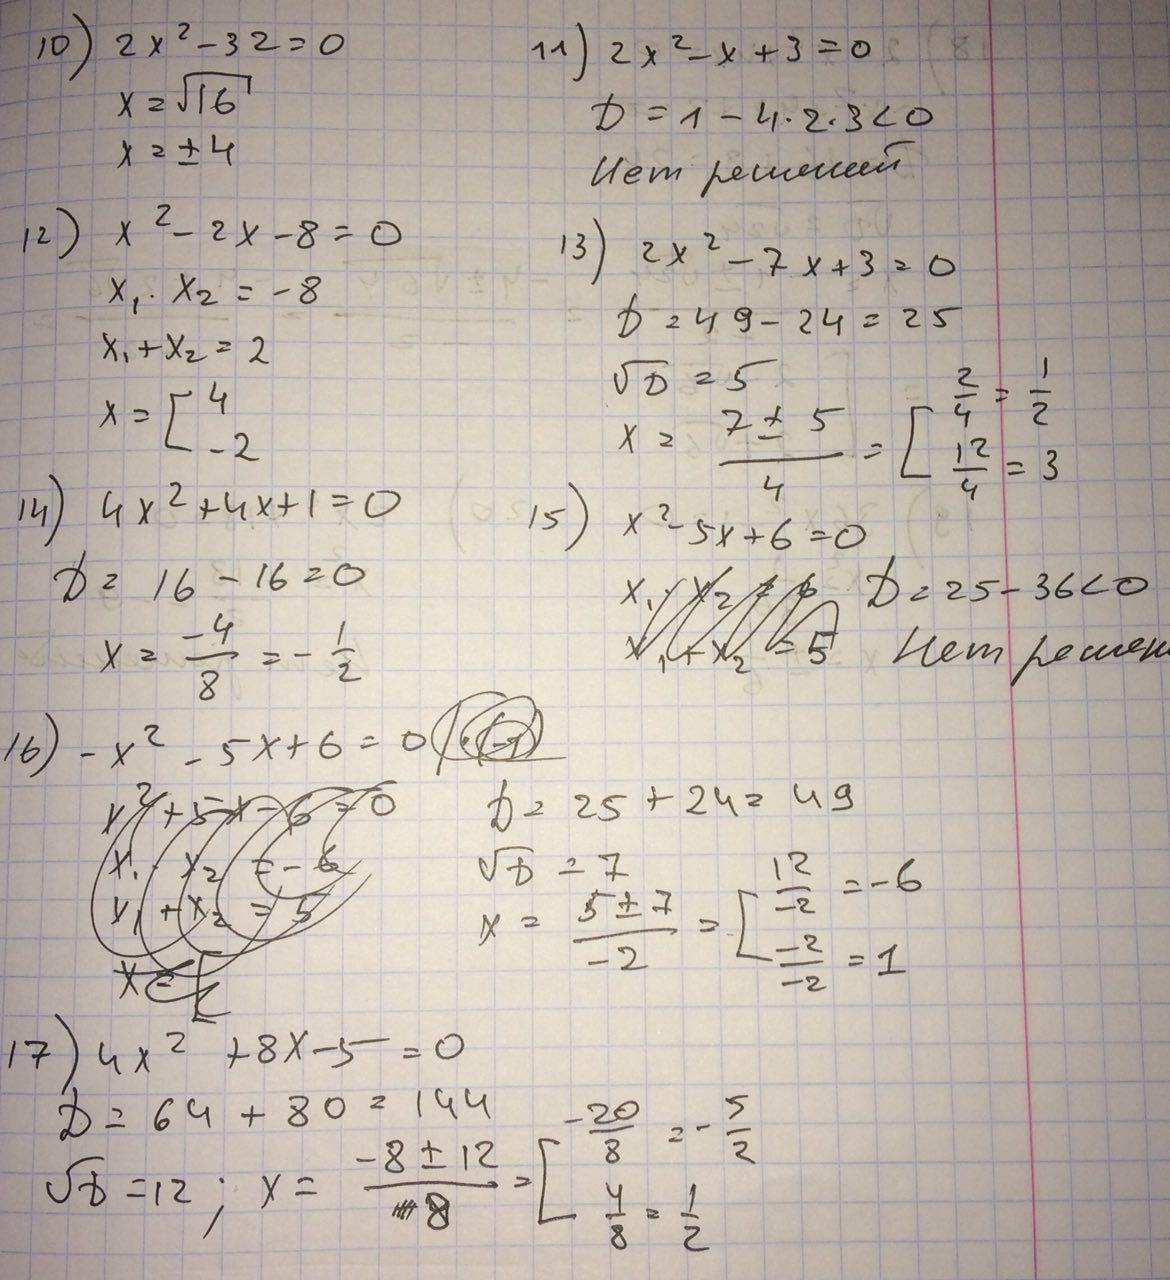 10) 2x² - 32 = 0
x = √16
x = ± 4
11) 2x² - x + 3 = 0
D = 1 - 4·2·3 < 0
Нет решений
12) x² - 2x - 8 = 0
x₁ · x₂ = -8
x₁ + x₂ = 2
x = [ 4
-2
13) 2x² - 7x + 3 = 0
D = 49 - 24 = 25
√D = 5
x = (7 ± 5)/4 = [ 2/4 = 1/2
12/4 = 3
14) 4x² + 4x + 1 = 0
D = 16 - 16 = 0
x = -4/8 = -1/2
15) x² - 5x + 6 = 0
x₁ · x₂ = 6
x₁ + x₂ = 5
D = 25 - 36 < 0
Нет решен
16) -x² - 5x + 6 = 0
x² + 5x - 6 = 0
x₁ · x₂ = -6
x₁ + x₂ = 5
x = [
D = 25 + 24 = 49
√D = 7
x = (5 ± 7)/-2 = [ 12/-2 = -6
-2/-2 = 1
17) 4x² + 8x - 5 = 0
D = 64 + 80 = 144
√D = 12 ; x = (-8 ± 12)/8 = [ -20/8 = -5/2
4/8 = 1/2